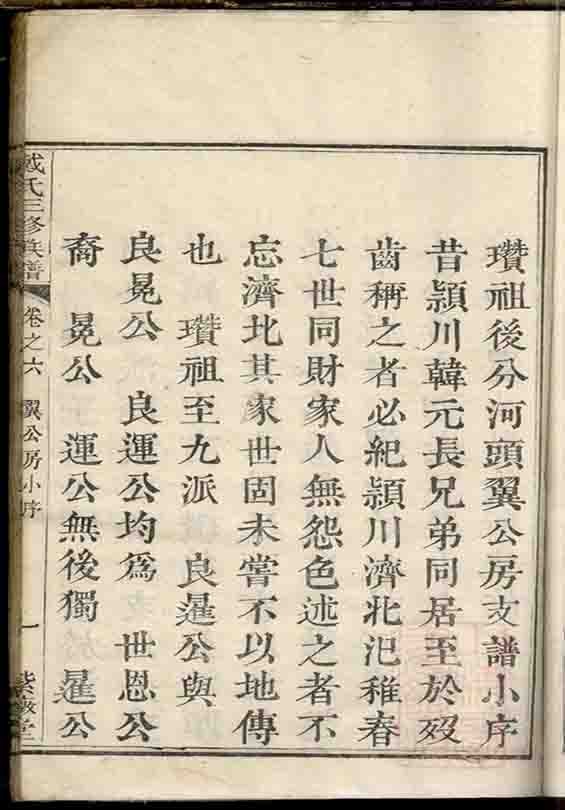 瓚祖後分河頭翼公房支譜小序
昔潁川韓元長兄弟同居至於歿
齒稱之者必紀潁川濟北氾稚春
七世同財家人無怨色述之者不
忘濟北其家世固未嘗不以地傳
也 瓚祖至九派 良暹公與
良冕公 良運公均為 世恩公
裔 冕公 運公無後獨 暹公
戴氏三修族譜 卷之六 翼公房小序 一